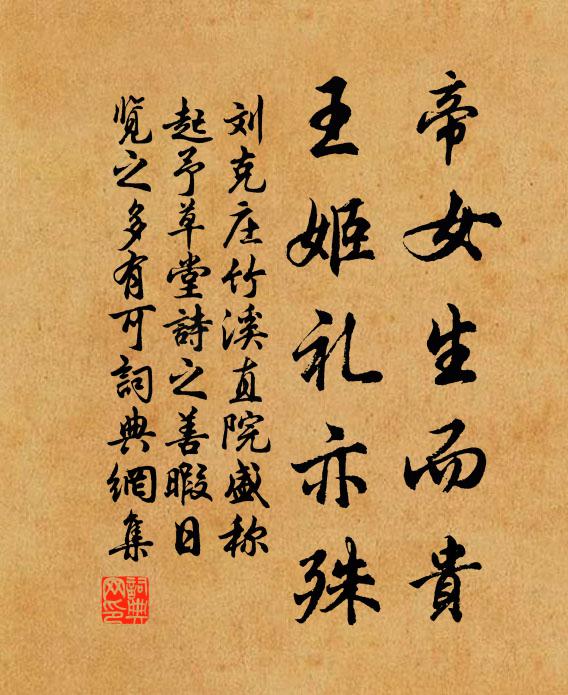 帝女生而貴
王姬礼亦殊
刘克庄竹溪直院盛称
起予草堂詩之善暇日
覧之多有可詞典網集
詞典網印